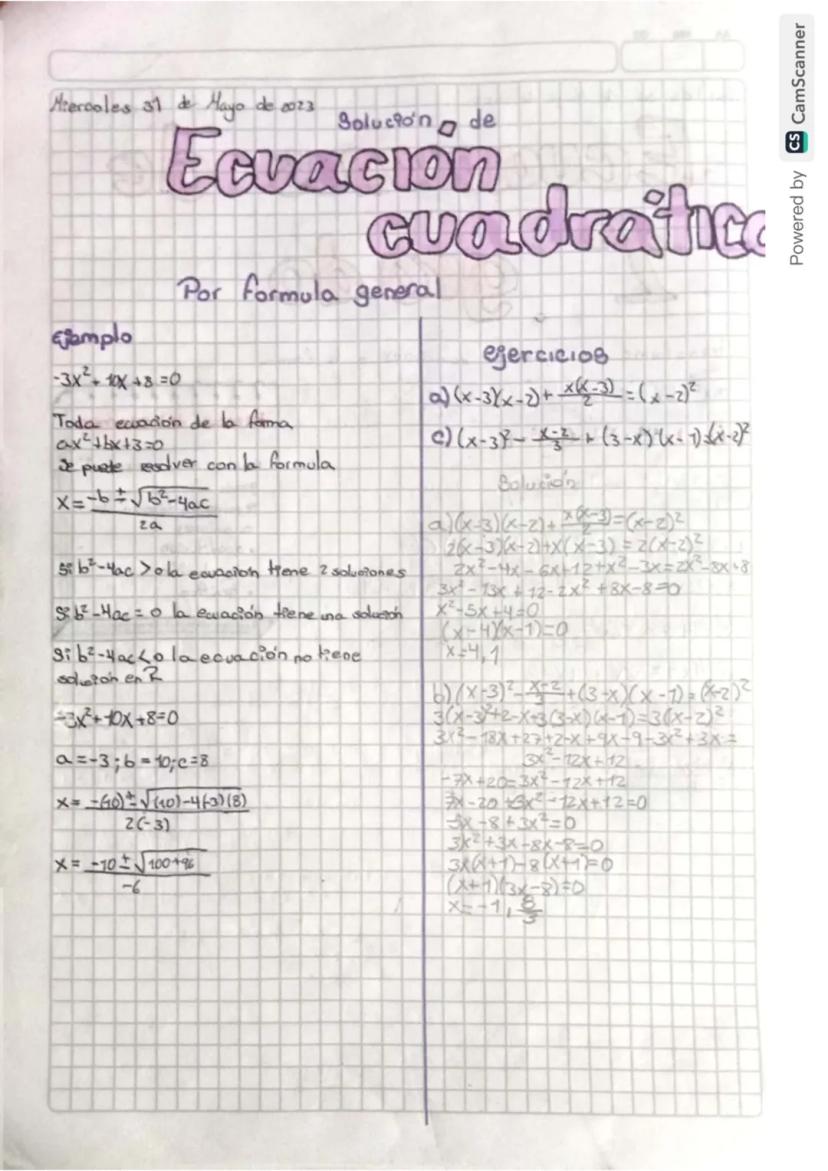 Miercoles 31 de Mayo de 2023
Solución de
Ecuación
cuadrática
Por formula general
Ejemplo
-3x²+10x+8=0
Toda ecuación de la forma
ax²+bx+3=0
Se puede resolver con la formula
x = (-b ± √(b²-4ac)) / 2a
Si b²-4ac > 0 la ecuacion tiene 2 soluciones
Si b²-4ac = 0 la ecuación tiene una solución
Si b²-4ac < 0 la ecuación no tiene
solución en R
-3x²+10x+8=0
a=-3; b=10; c=8
x = (-(10) ± √((10)-4(-3)(8))) / 2(-3)
x = (-10 ± √(100+96)) / -6
ejercicios
a) (x-3)(x-2) + x(x-3)/2 = (x-2)²
c) (x-3)² - (x-2)/3 + (3-x)(x-1)=(x-2)²
Solución
a) (x-3)(x-2) + x(x-3)/2 = (x-2)²
2(x-3)(x-2)+x(x-3) = 2(x-2)²
2x²-4x-6x+12+x²-3x=2x²-8x+8
3x²-13x+12-2x²+8x-8=0
x²-5x+4=0
(x-4)(x-1)=0
x=4,1
b) (x-3)² - (x-2)/3 + (3-x)(x-1) = (x-2)²
3(x-3)²+2-x+3(3-x)(x-1)=3(x-2)²
3x²-18x+27+2-x+9x-9-3x²+3x=
3x²-12x+12
-7x+20=3x²-12x+12
7x-20+3x²-12x+12=0
-5x-8+3x²=0
3x²+3x-8x-8=0
3x(x+1)-8(x+1)=0
(x+1)(3x-8)=0
x=-1, 8/3
Powered by CS CamScanner